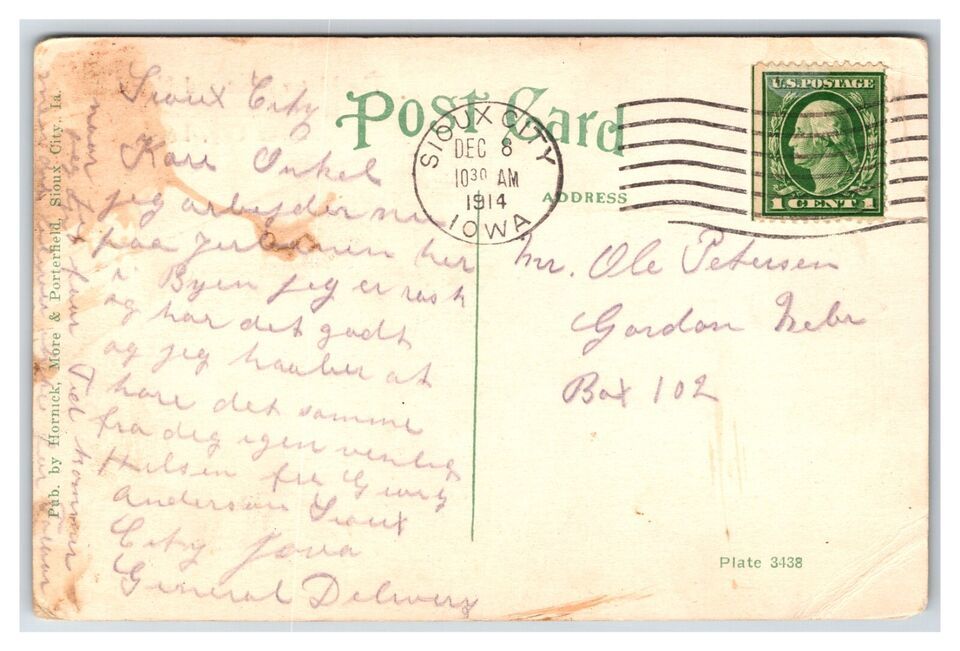 Sioux City
Kare Onkel
jeg arbejder nu
paa Jernbanen her
i Byen jeg er rask
og har det godt
og jeg haaber at
høre det samme
fra dig igen venligt
Hilsen fra Georg
Anderson Sioux
City Iova
General Delivery
naar
du faar Tid
Pub. by Hornick, More & Porterfield, Sioux City, Ia.
Post Card
SIOUX CITY
DEC 8
10 30 AM
1914
IOWA
U.S. POSTAGE
1 CENT 1
ADDRESS
Mr. Ole Petersen
Gordon Nebr
Box 102
Plate 3438